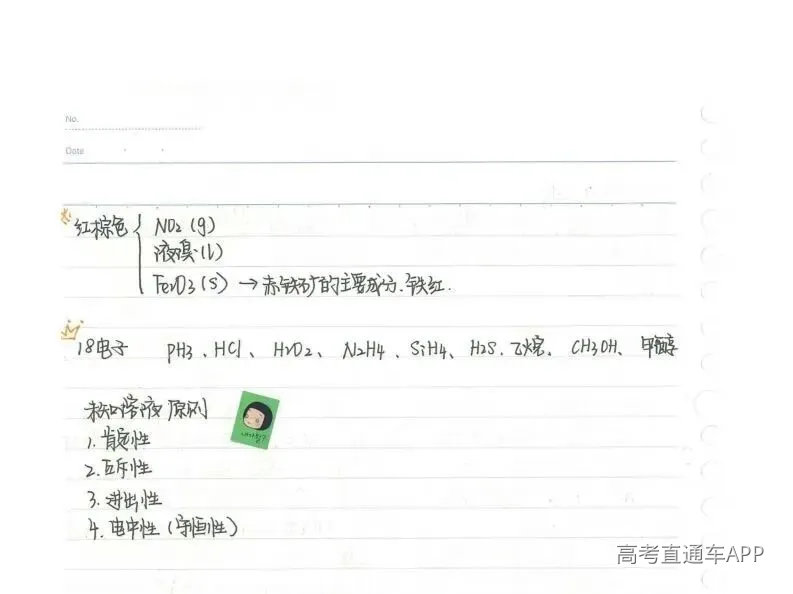 No.
Date
红棕色 NO2(g)
液溴(l)
Fe2O3(s) → 赤铁矿的主要成分.铁红.
18电子 PH3、HCl、H2O2、N2H4、SiH4、H2S、乙烷、CH3OH、甲醇
未知溶液原则
1.肯定性
2.互斥性
3.进出性
4.电中性(守恒性)
高考直通车APP